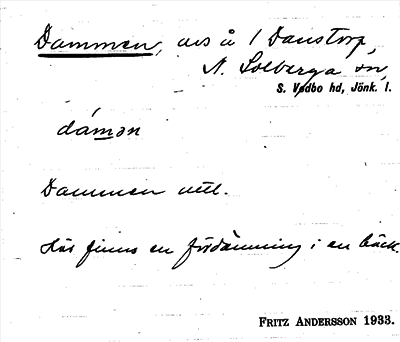 Dammen, avs å 1 Danstorp,
N. Solberga sn,
S. Vedbo hd, Jönk. l.
dámən
Dammen uttl.
Här finns en fördämning i en bäck.
FRITZ ANDERSSON 1933.